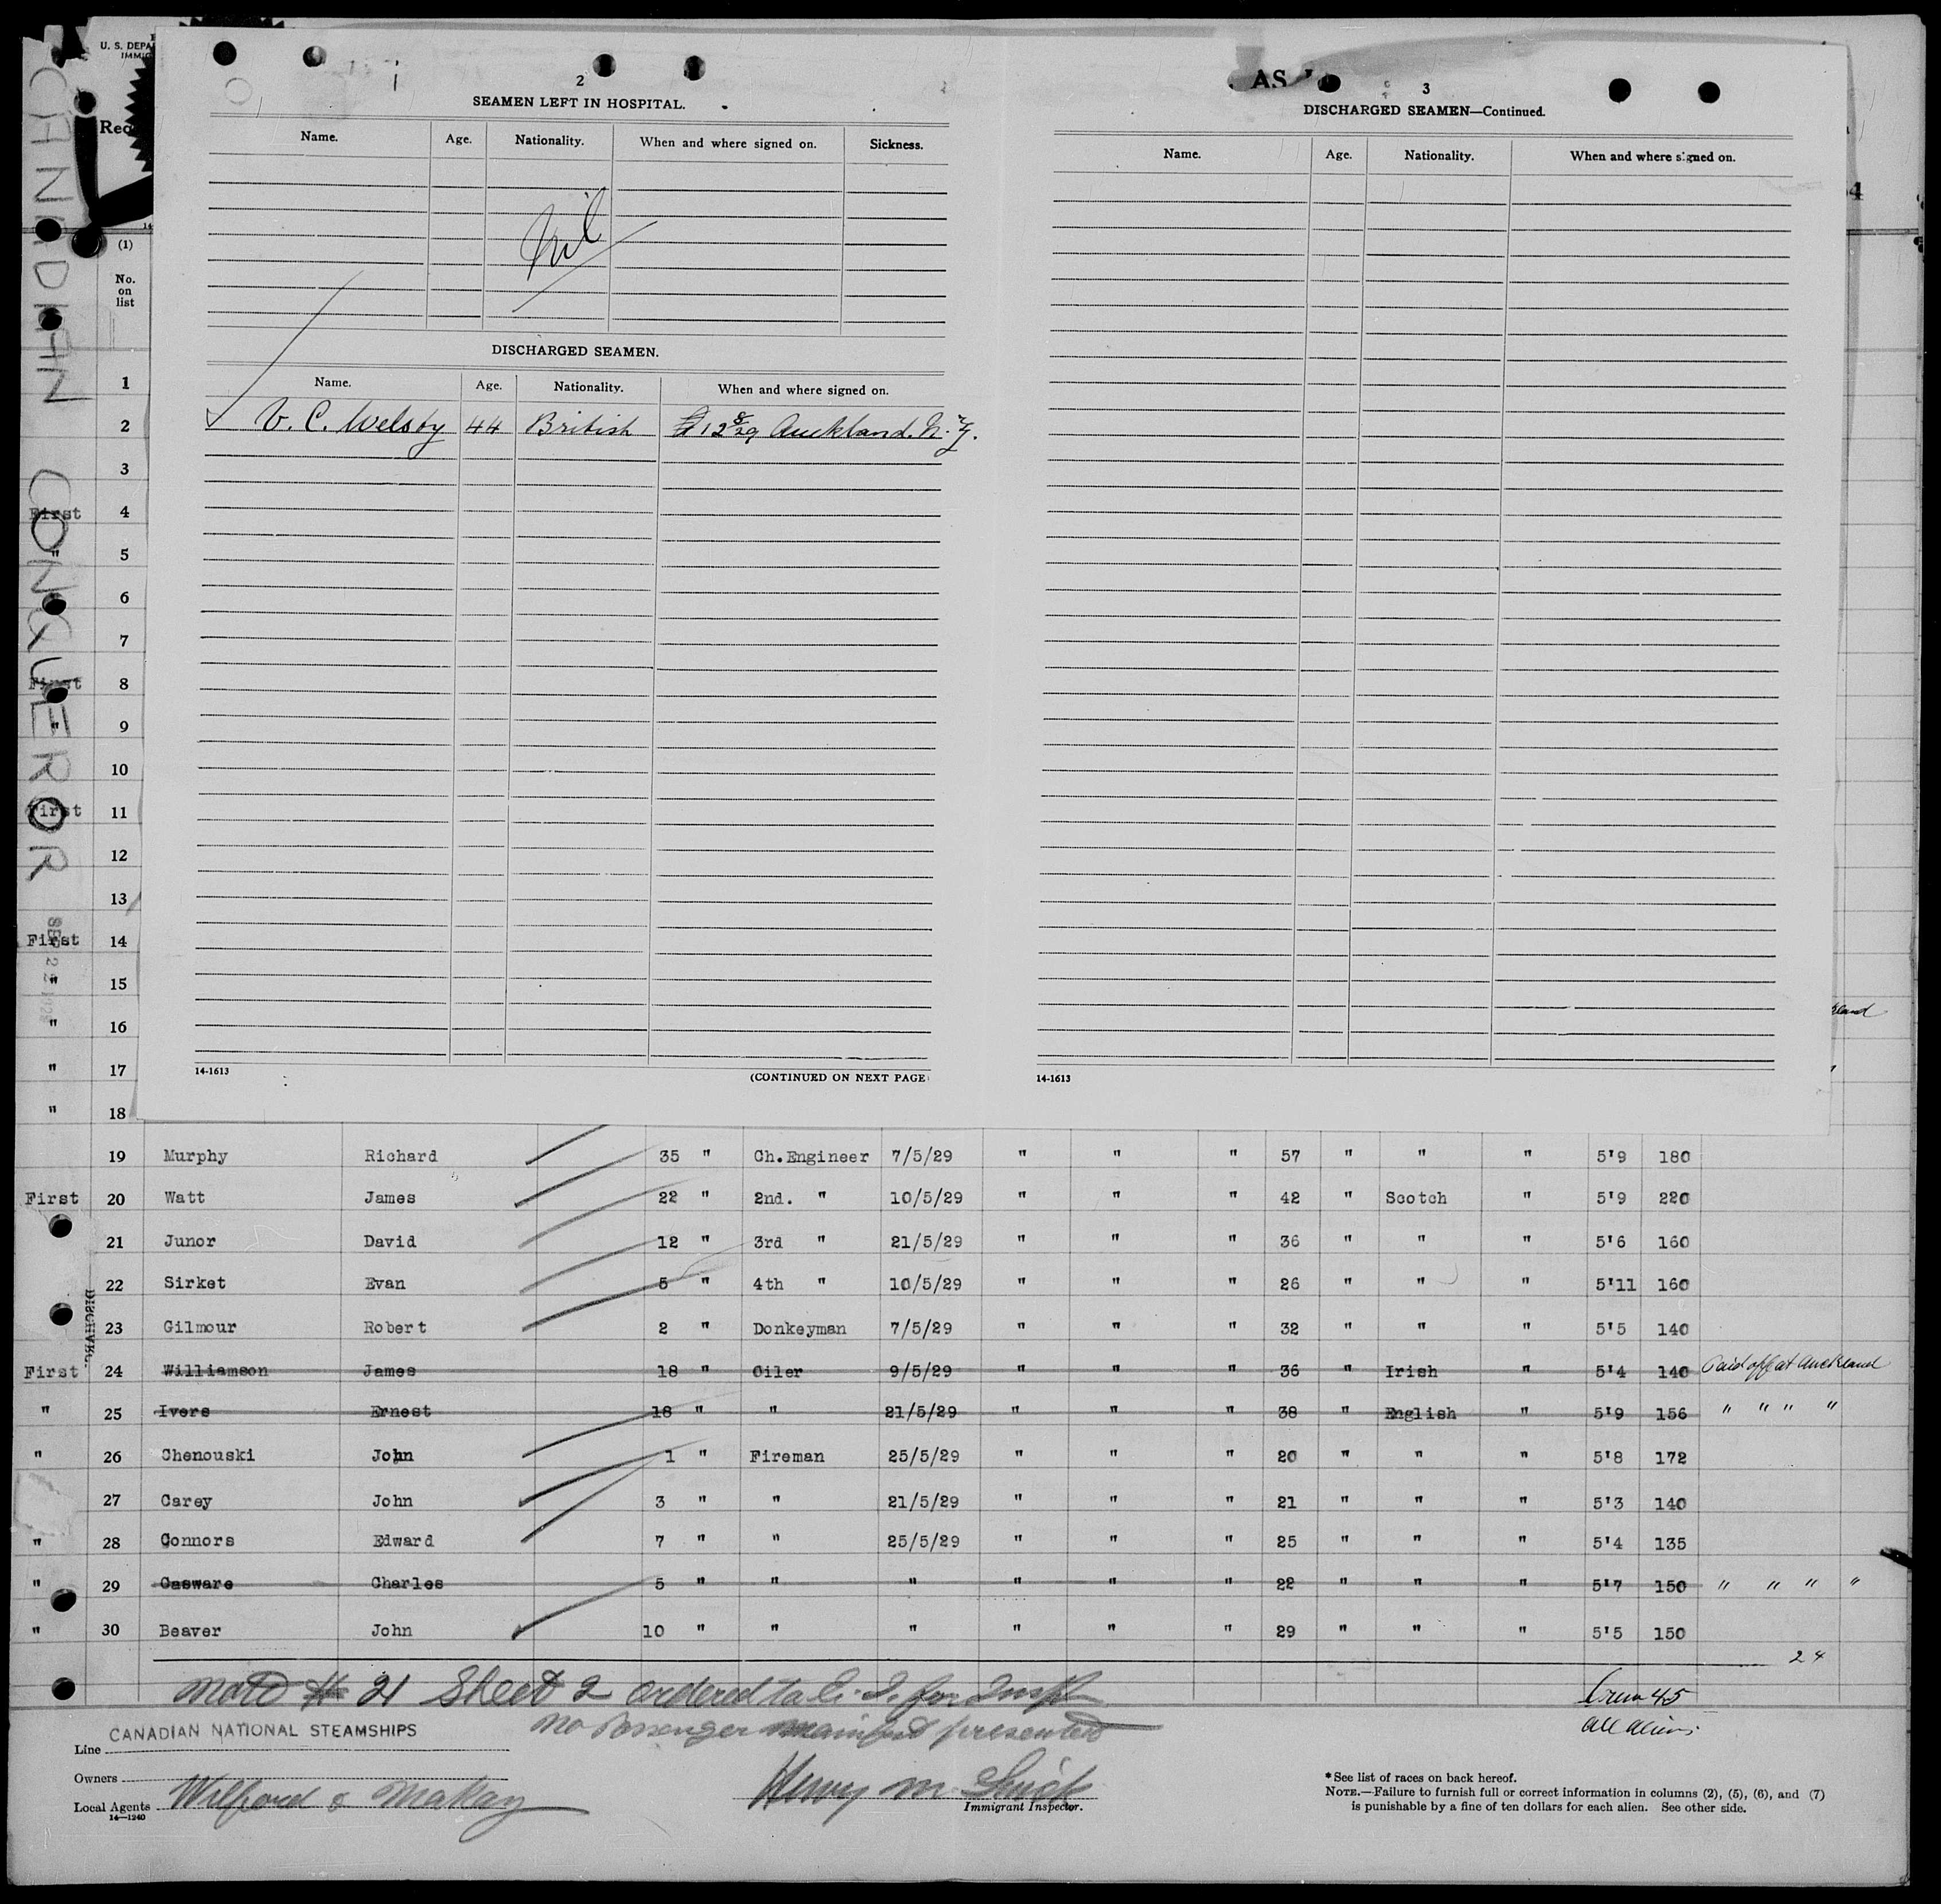 U. S. DEPA
IMMIG
CANADIAN CONQUEROR
2
SEAMEN LEFT IN HOSPITAL.
Name. Age. Nationality. When and where signed on. Sickness.
Nil
DISCHARGED SEAMEN.
Name. Age. Nationality. When and where signed on.
V. C. Welsby 44 British 12 8/29 Auckland. N. Z.
14-1613 (CONTINUED ON NEXT PAGE
AS
3
DISCHARGED SEAMEN—Continued.
Name. Age. Nationality. When and where signed on.
14-1613
(1)
No.
on
list
1
2
3
First 4
" 5
6
7
First 8
" 9
10
First 11
12
13
First 14
" 15
" 16
" 17
" 18
19 Murphy Richard 35 " Ch.Engineer 7/5/29 " " " 57 " " " 5'9 180
First 20 Watt James 22 " 2nd. " 10/5/29 " " " 42 " Scotch " 5'9 220
21 Junor David 12 " 3rd " 21/5/29 " " " 36 " " " 5'6 160
22 Sirket Evan 5 " 4th " 10/5/29 " " " 26 " " " 5'11 160
23 Gilmour Robert 2 " Donkeyman 7/5/29 " " " 32 " " " 5'5 140
First 24 Williamson James 18 " Oiler 9/5/29 " " " 36 " Irish " 5'4 140 Paid off at Auckland
" 25 Ivers Ernest 18 " " 21/5/29 " " " 38 " English " 5'9 156 " " " "
" 26 Chenouski John 1 " Fireman 25/5/29 " " " 20 " " " 5'8 172
27 Carey John 3 " " 21/5/29 " " " 21 " " " 5'3 140
" 28 Connors Edward 7 " " 25/5/29 " " " 25 " " " 5'4 135
" 29 Casware Charles 5 " " " " " " 22 " " " 5'7 150 " " " "
" 30 Beaver John 10 " " " " " " 29 " " " 5'5 150
24
Note # 21 Sheet 2 ordered to for
Crew 45
No Passenger manifest presented
all aliens
Line CANADIAN NATIONAL STEAMSHIPS
Owners
Local Agents Wilford & MaKay
14—1240
Henry M.
Immigrant Inspector.
* See list of races on back hereof.
NOTE.—Failure to furnish full or correct information in columns (2), (5), (6), and (7)
is punishable by a fine of ten dollars for each alien. See other side.